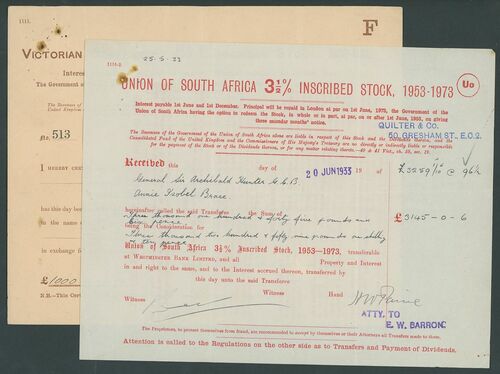 1115.
F
VICTORIAN
Interes
The Government o
The Revenues of
United Kingdom
No. 513
I HEREBY CERT
has this day been
on the
in exchange fo
£1000
N.B.—This Cert
1114-2
25.5.33
UNION OF SOUTH AFRICA 3½% INSCRIBED STOCK, 1953-1973
Uo
Interest payable 1st June and 1st December. Principal will be repaid in London at par on 1st June, 1973, the Government of the
Union of South Africa having the option to redeem the Stock, in whole or in part, at par, on or after 1st June, 1953, on giving
three months' notice.
QUILTER & CO.
50, GRESHAM ST., E.C.2.
The Revenues of the Government of the Union of South Africa alone are liable in respect of this Stock and the Dividends thereon, and the
Consolidated Fund of the United Kingdom and the Commissioners of His Majesty's Treasury are not directly or indirectly liable or responsible
for the payment of the Stock or of the Dividends thereon, or for any matter relating thereto.—40 & 41 Vict., ch. 59, sec. 19.
Received this day of 20 JUN 1933 19 of £3259/1/10 @ 96½
General Sir Archibald Hunter G.C.B
Annie Isobel Brace
hereinafter called the said Transferee the Sum of
Three thousand one hundred & forty five pounds and
six pence £3145-0-6
being the Consideration for
Three thousand two hundred & fifty nine pounds one shilling
& ten pence
Union of South Africa 3½% Inscribed Stock, 1953—1973, transferable
at WESTMINSTER BANK LIMITED, and all Property and Interest
in and right to the same, and to the Interest accrued thereon, transferred by
this day unto the said Transferee
Witness Witness Hand
ATTY. TO
E. W. BARRON.
The Proprietors, to protect themselves from fraud, are recommended to accept by themselves or their Attorneys all Transfers made to them.
Attention is called to the Regulations on the other side as to Transfers and Payment of Dividends.